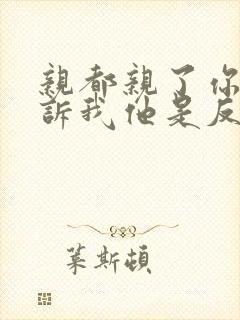 親都親了你
訴我他是反
萊斯頓